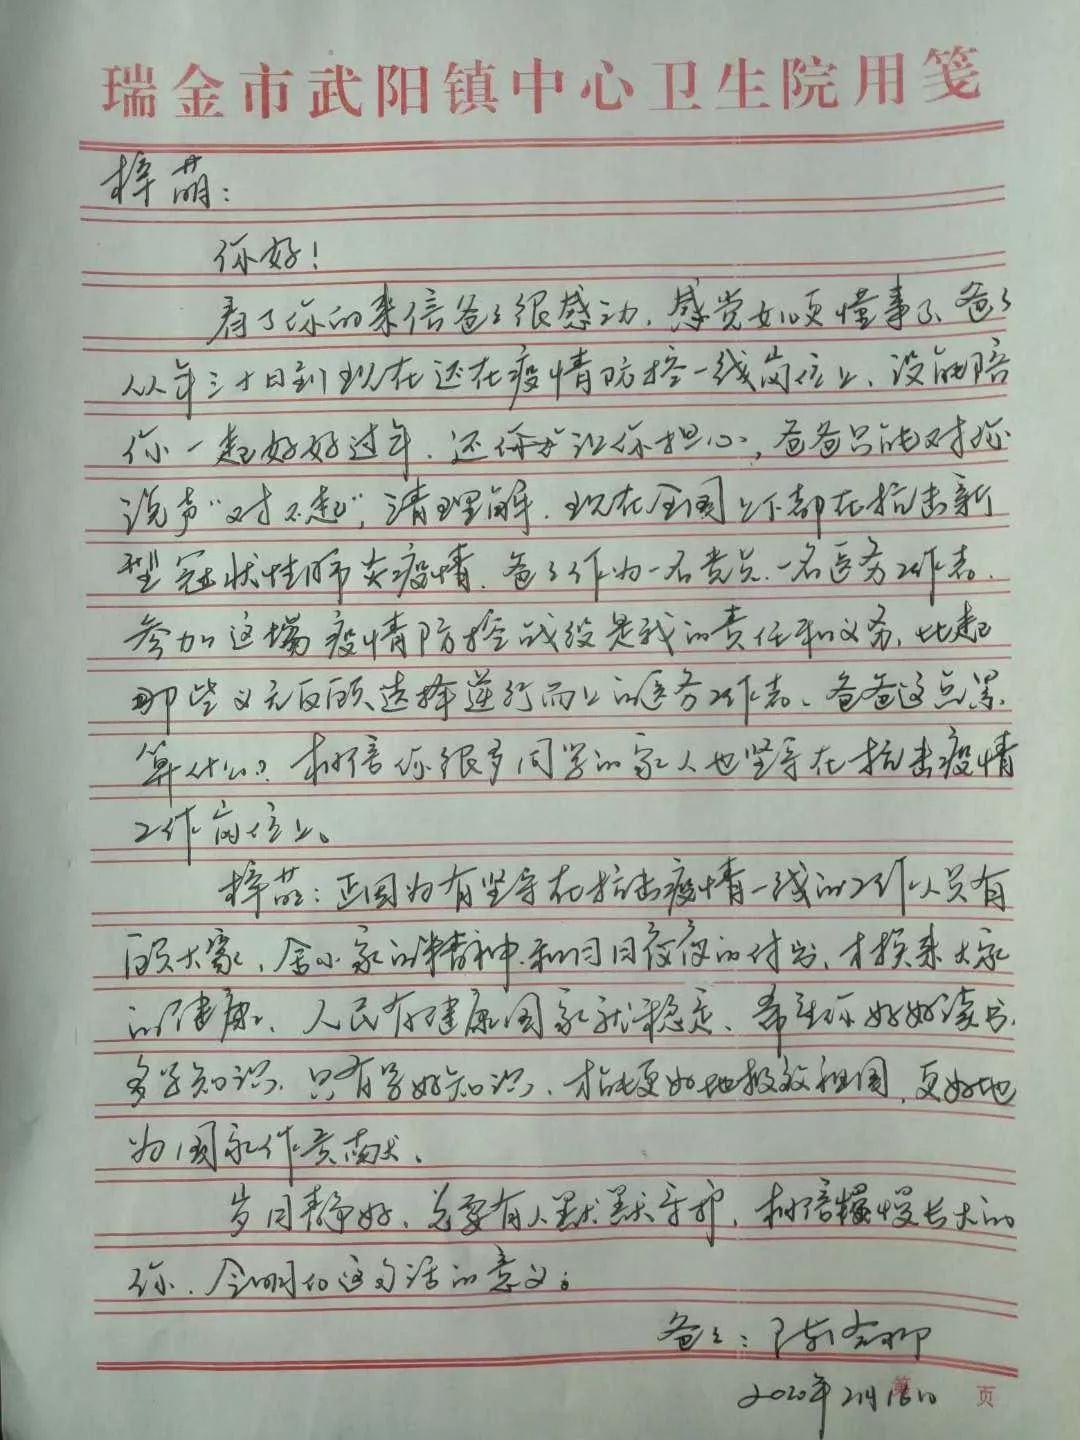 瑞金市武阳镇中心卫生院用笺
梓萌：
你好！
看了你的来信爸爸很感动，感觉女儿更懂事了、爸爸
从年三十日到现在还在疫情防控一线岗位上、没能陪
你一起好好过年、还让你担心，爸爸只能对你
说声“对不起”，请理解．现在全国上下都在抗击新
型冠状性肺炎疫情，爸爸作为一名党员、一名医务工作者、
参加这场疫情防控战役是我的责任和义务，比起
那些义无反顾选择逆行而上的医务工作者、爸爸这点累
算什么？相信你很多同学的家人也坚守在抗击疫情
工作岗位上。
梓萌：正因为有坚守在抗击疫情一线的工作人员有
顾大家、舍小家的精神、和日日夜夜的付出，才换来大家
的健康、人民有健康国家就稳定、希望你好好读书、
多学知识、只有学好知识、才能更好地报效祖国，更好地
为国家作贡献、
岁月静好、总要有人默默守护，相信慢慢长大的
你、会明白这句话的意义。
爸爸：陈
2020年2月18日
第 页